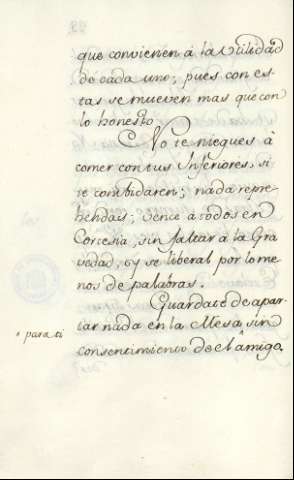 que convienen á la Utilidad
de cada uno; pues con es-
tas se mueven mas que con
lo honesto.
No te niegues à
comer con tus Inferiores, si
te combidaren; nada repre-
hendas; vence à todos en
Cortesia, sin faltar à la Gra
vedad, y se liberal por lo me
nos de palabras.
Guardate de apar-
tar nada en la Mesa, sin
" para ti
consentimiento de el amigo.